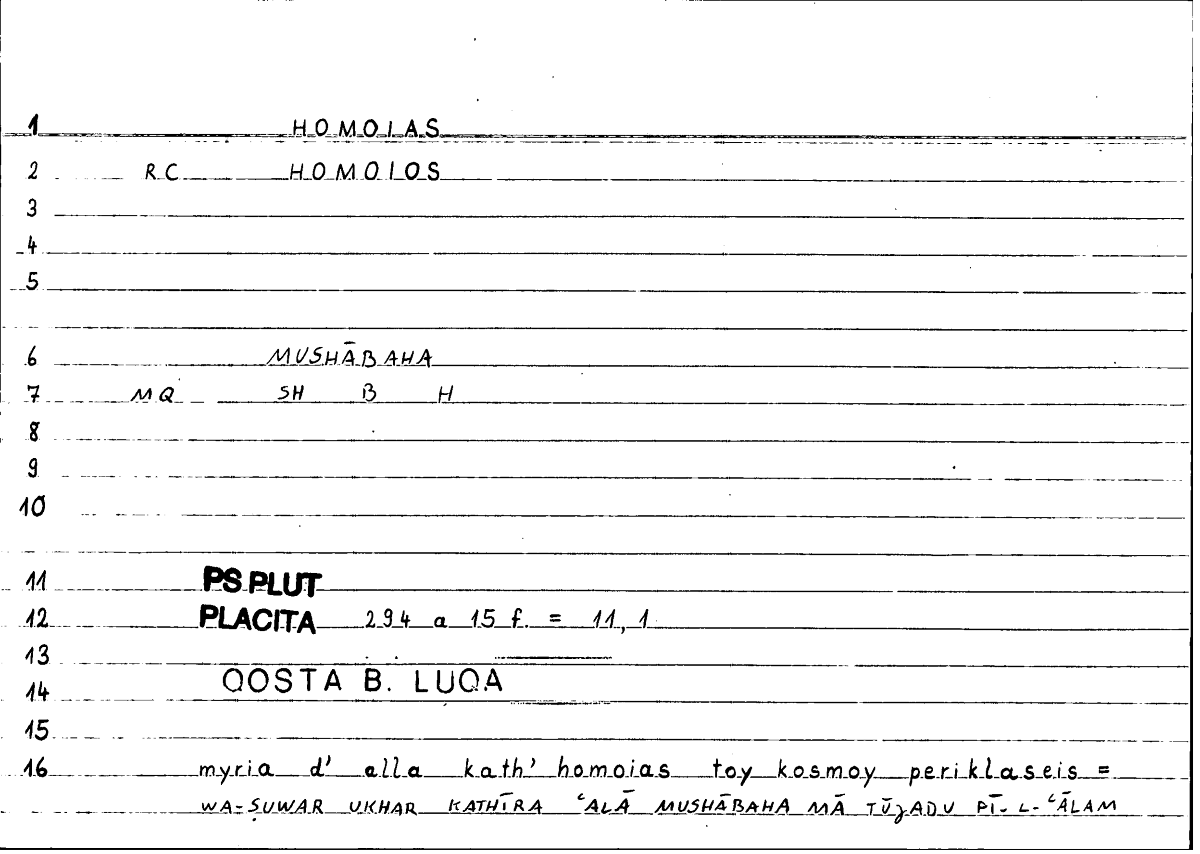 1 HOMOIAS
2 RC HOMOIOS
3
4
5
6 MUSHĀBAHA
7 MQ SH B H
8
9
10
11 PS PLUT
12 PLACITA 294 a 15 f. = 11,1
13
14 QOSTA B. LUQA
15
16 myria d' alla kath' homoias toy kosmoy periklaseis =
WA-ṢUWAR UKHAR KATHĪRA ʿALĀ MUSHĀBAHA MĀ TŪǧADU FĪ- L-ʿĀLAM